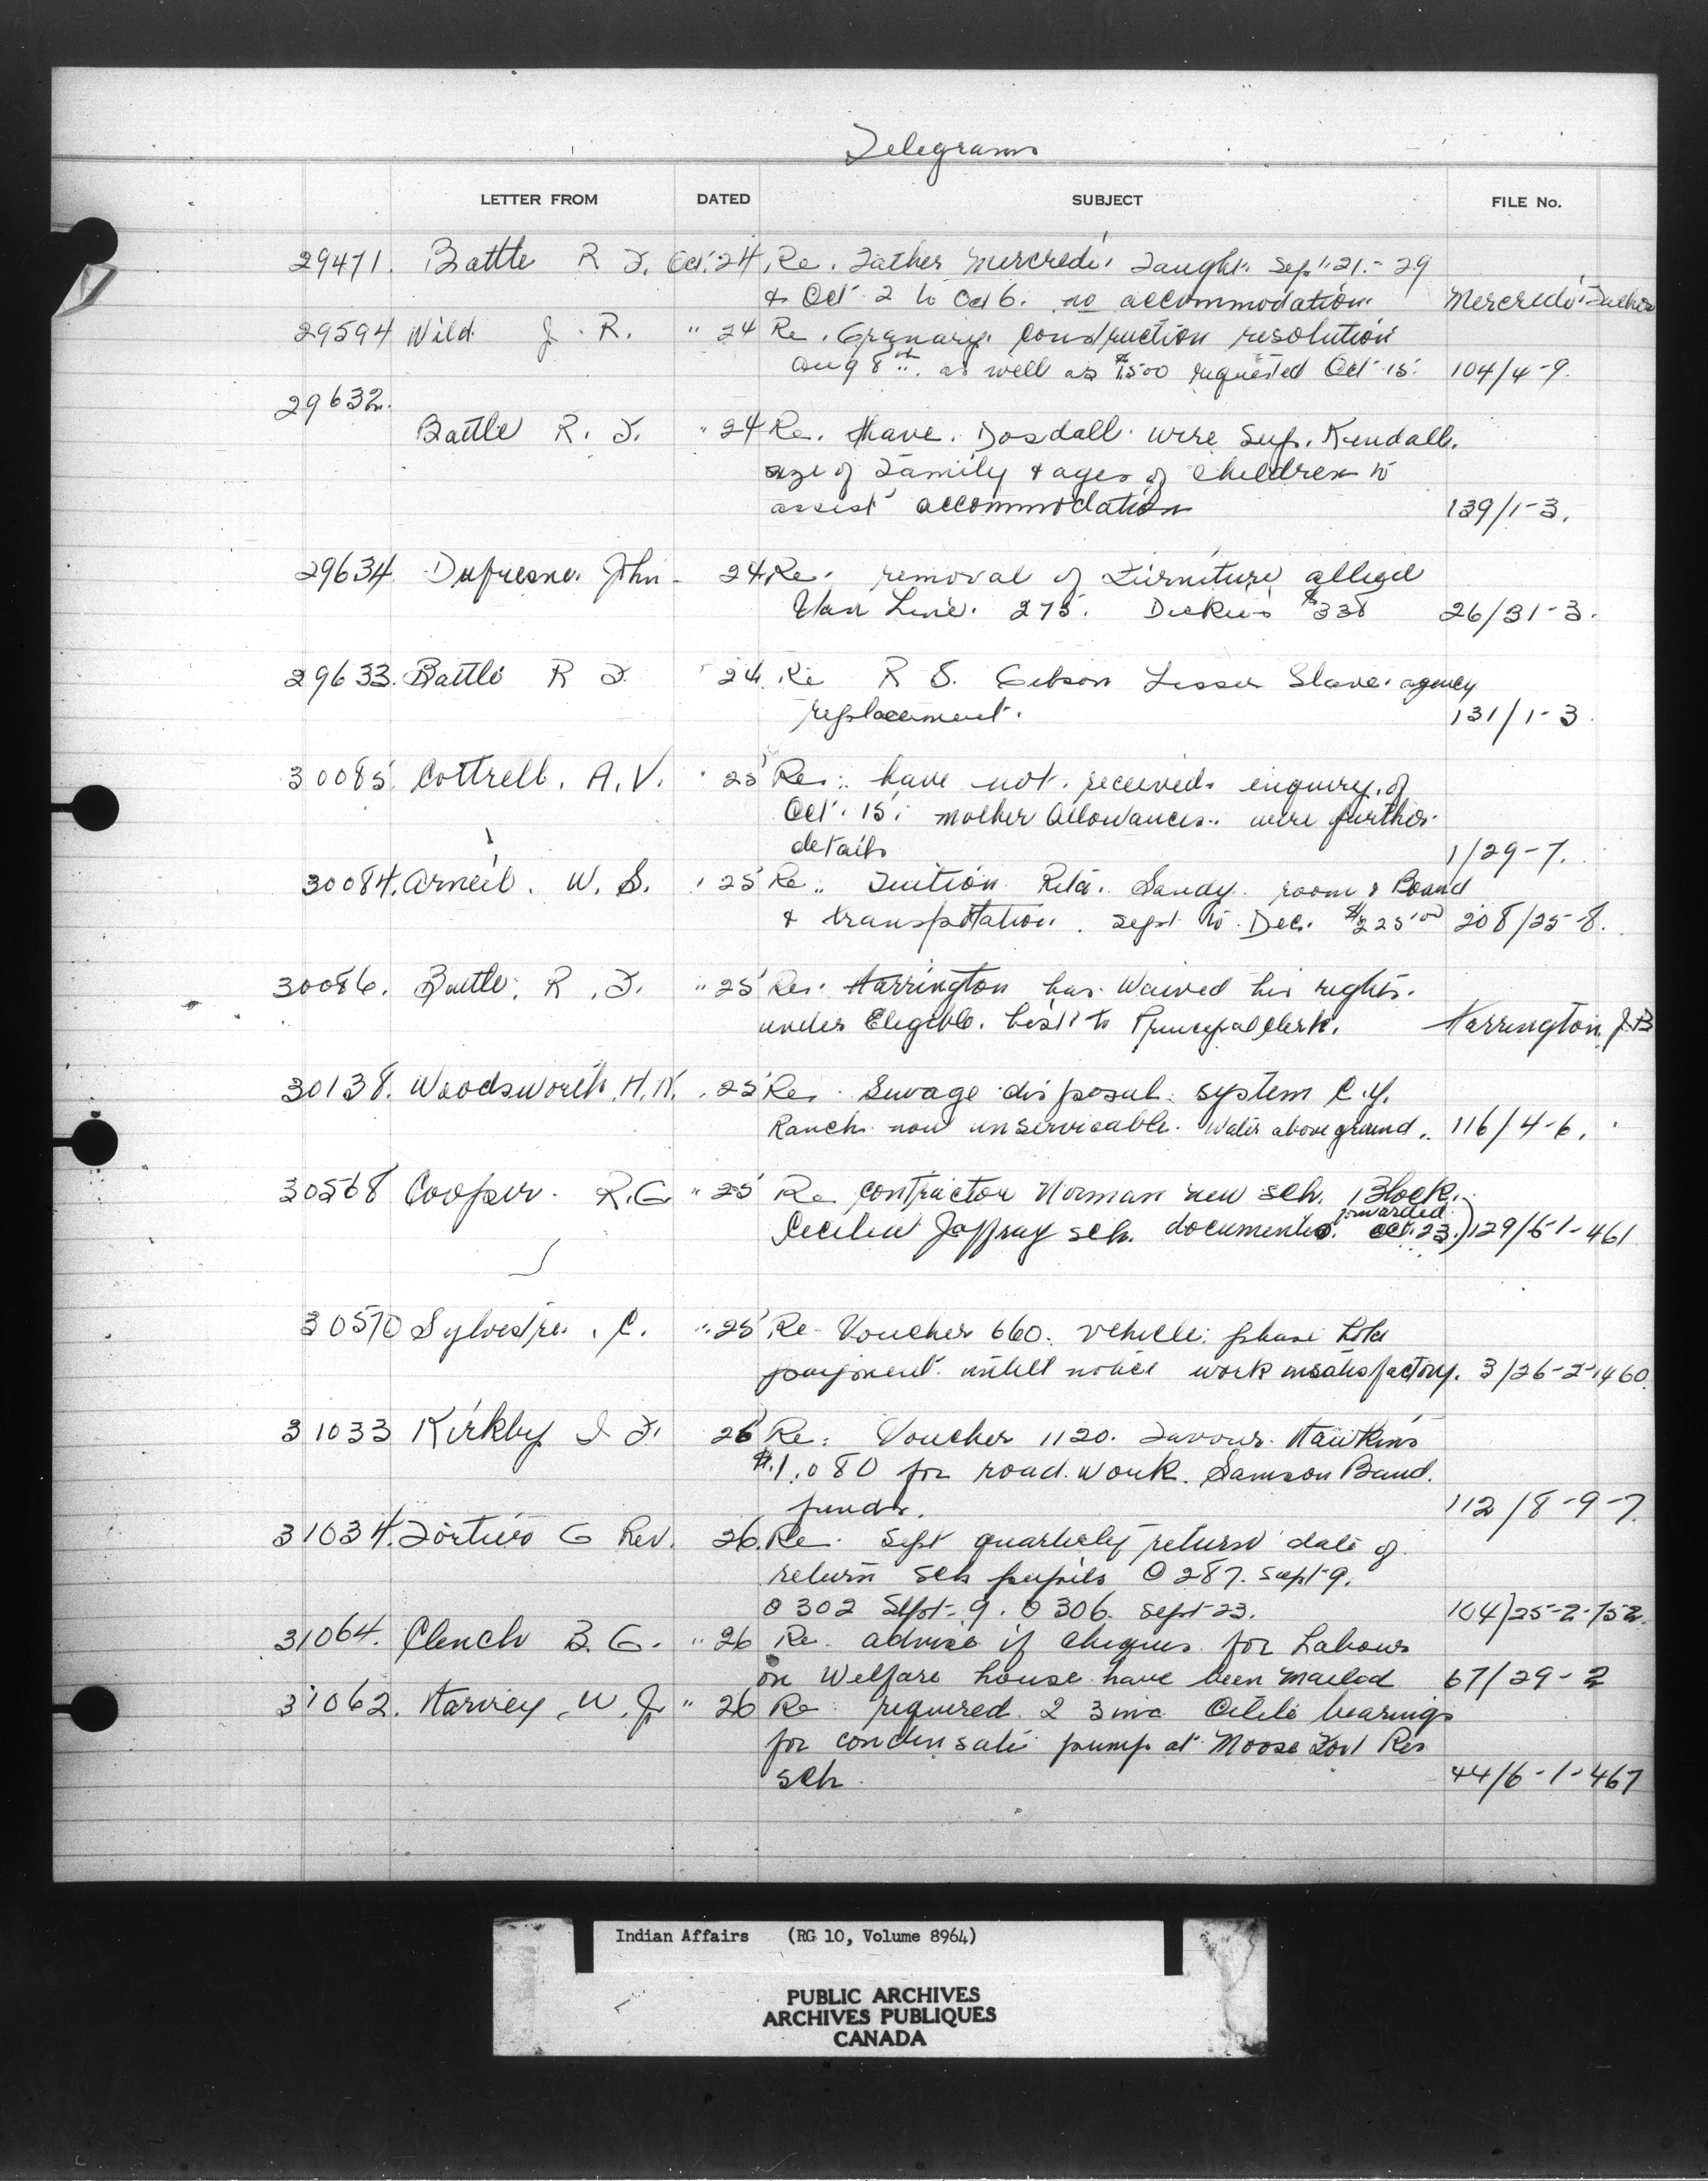 Telegrams
LETTER FROM DATED SUBJECT FILE No.
29471. Battle R F. Oct. 24, Re. Father Mercredi Taught Sept 21 - 29
& Oct 2 to Oct 6. no accommodation Mercredi Father
29594 Wild J. R. " 24 Re. Granary. construction resolution
Aug 8th. as well as $1500 requested Oct 15. 104/4-9.
29632.
Battle R. F. " 24 Re. Have. Dosdall wire Sup. Kendall.
size of Family & ages of children to
assist accommodation 139/1-3.
29634. Dufresne. John - 24 Re. removal of Furniture allied
Van Line. 275. Dickies $338 26/31-3.
29633. Battle R F " 24. Re R S. Gibson Lesser Slave agency
replacement. 131/1-3.
30085. Cottrell. A. V. " 25 Re: have not received enquiry of
Oct. 15. mother Allowances. wire further
details 1/29-7.
30084. Arneil. W. S. " 25 Re. Tuition Rita. Sandy. room & Board
& transpotation. Sept to Dec. $225.00 208/25-8.
30086. Battle. R. F. " 25 Re. Harrington has waived his rights.
under Eligible. List to Principal Clerk. Harrington, J B
30138. Woodsworth, H. N. . 25 Re. Sewage disposal system C. Y.
Ranch now unservicable. Water above ground. 116/4-6.
30568 Cooper. R. G " 25 Re contractor Norman new sch. Block.
forwarded
Cecilia Jaffray sch. documents. Oct. 23.) 129/6-1-461
30570 Sylvestre. C. " 25 Re - Voucher 660. vehicle. please hold
payment untill notice work insatisfactory. 3/26-2-1460
31033 Kirkby I F. 26 Re: Voucher 1120. Favour. Hawkins
$1,080 for road work. Samson Band.
funds. 112/8-9-7.
31034. Fortier G Rev. 26. Re. Sept quarterly return date of
return sch pupils 0 287. Sept 9.
0 302 Sept. 9. 0 306. Sept 23. 104/25-2-152.
31064. Clench B. G. " 26 Re. advise if cheques for Labour
on Welfare house have been mailed 67/29-2
31062. Harvey, W. J. " 26 Re required 2 3 bearings
for condensate pump at Moose Fort Res
sch. 44/6-1-467
Indian Affairs (RG 10, Volume 8964)
PUBLIC ARCHIVES
ARCHIVES PUBLIQUES
CANADA